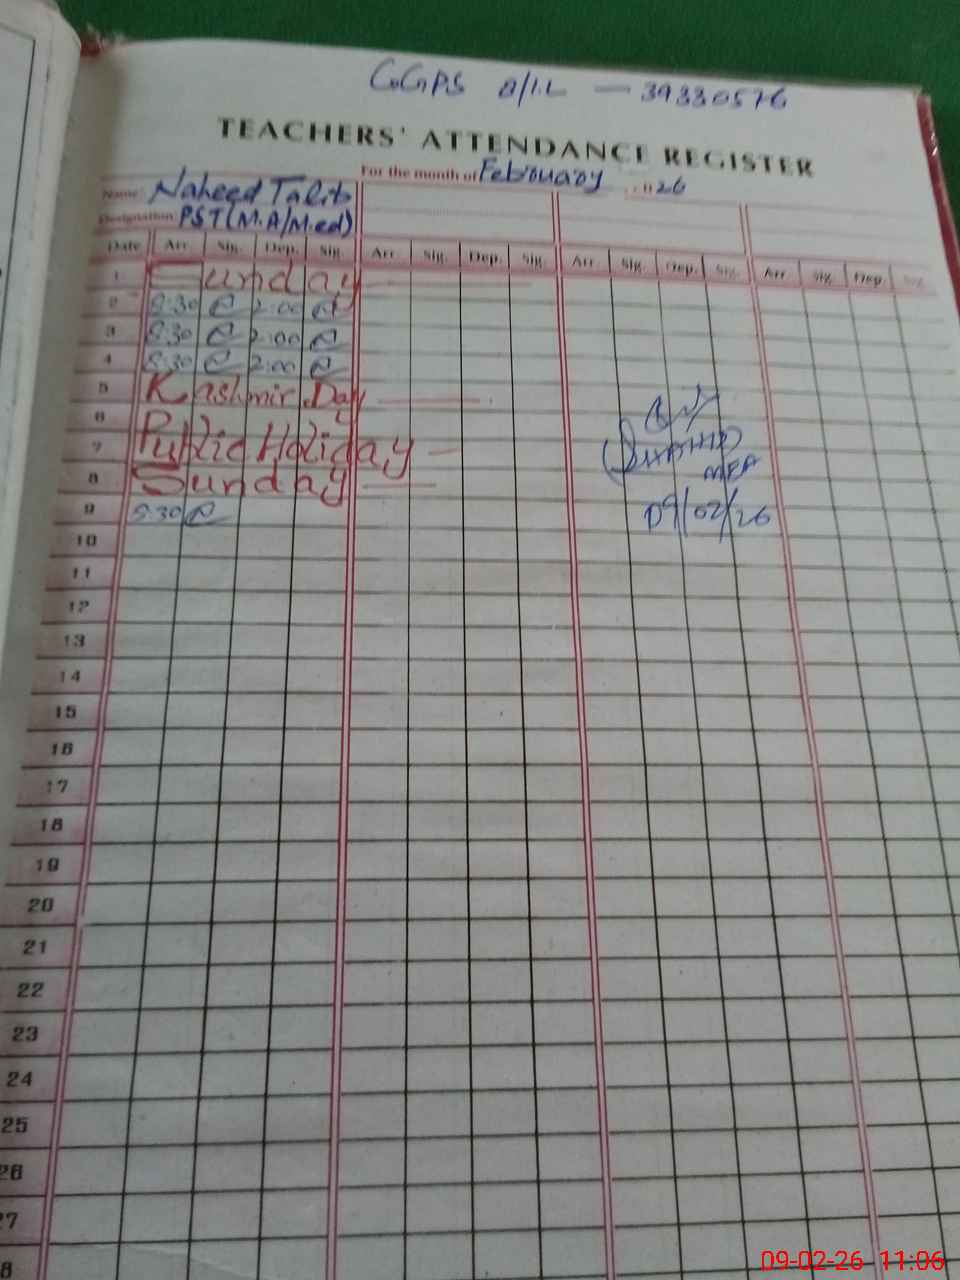 GGPS B/I.L — 39330576
TEACHERS' ATTENDANCE REGISTER
For the month of February 26
Name: Naheed Talib
Designation PST(M.A/M.ed)
Date Arr. Sig. Dep. Sig. Arr. Sig. Dep. Sig. Arr. Sig. Dep. Sig. Arr. Sig. Dep. Sig.
1 Sunday
2 8:30 2:00
3 8:30 2:00
4 8:30 2:00
5 Kashmir Day
6
7 Public Holiday
SHAHID
8 Sunday
MEA
9 8:30
09/02/26
10
11
12
13
14
15
16
17
18
19
20
21
22
23
24
25
26
27
8
09-02-26 11:06